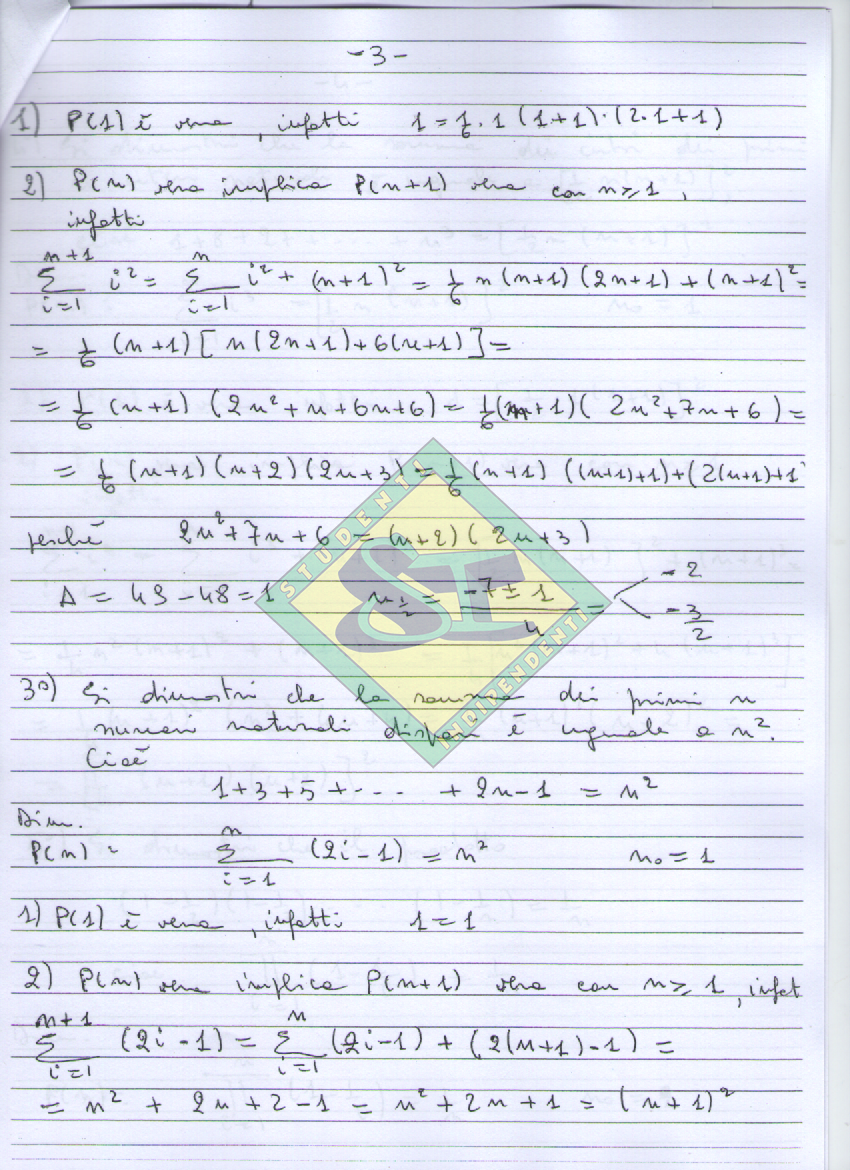 -3-
1) P(1) è vera, infatti 1 = 1/6 · 1 (1+1)·(2·1+1)
2) P(n) vera implica P(n+1) vera con n ≥ 1,
infatti
∑_{i=1}^{n+1} i² = ∑_{i=1}^{n} i² + (n+1)² = 1/6 n(n+1)(2n+1) + (n+1)² =
= 1/6 (n+1) [n(2n+1)+6(n+1)] =
= 1/6 (n+1) (2n²+n+6n+6) = 1/6 (n+1)(2n²+7n+6) =
= 1/6 (n+1)(n+2)(2n+3) = 1/6 (n+1) ((n+1)+1)+(2(n+1)+1
perchè 2n²+7n+6 = (n+2)(2n+3)
Δ = 49-48 = 1 n½ = (-7±1)/4 = < -2
-3/2
STUDENTI
SI
INDIPENDENTI
3°) Si dimostri che la somma dei primi n
numeri naturali dispari è uguale a n².
Cioè
1+3+5+···· +2n-1 = n²
Dim.
P(n) = ∑_{i=1}^{n} (2i-1) = n² n₀ = 1
1) P(1) è vera, infatti 1 = 1
2) P(n) vera implica P(n+1) vera con n ≥ 1, infat
∑_{i=1}^{n+1} (2i-1) = ∑_{i=1}^{n} (2i-1) + (2(n+1)-1) =
= n² + 2n+2-1 = n²+2n+1 = (n+1)²